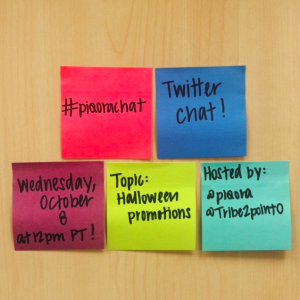 #piqorachat
Twitter
chat!
Wednesday,
October
8
at 12pm PT!
Topic:
Halloween
promotions
Hosted by:
@piqora
@Tribe2point0